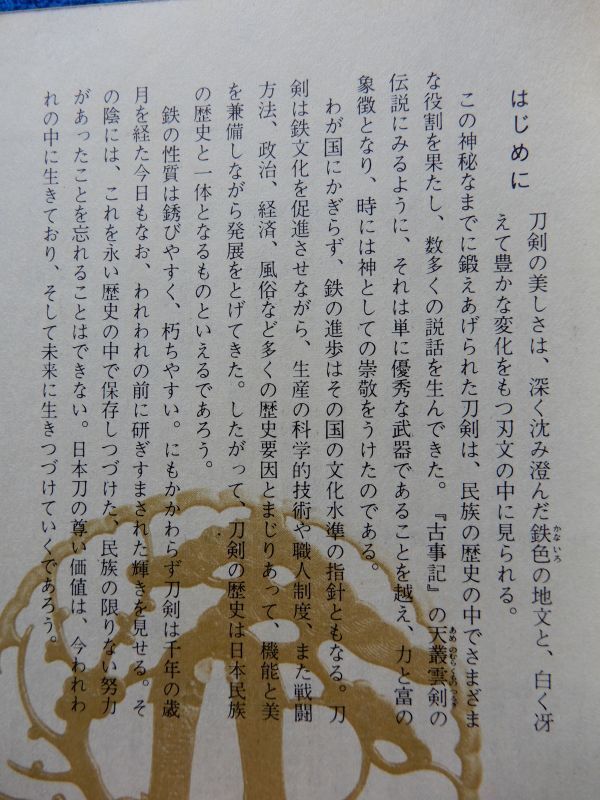 はじめに
刀剣の美しさは、深く沈み澄んだ鉄色の地文と、白く冴
かな いろ
えて豊かな変化をもつ刃文の中に見られる。
この神秘なまでに鍛えあげられた刀剣は、民族の歴史の中でさまざま
な役割を果たし、数多くの説話を生んできた。『古事記』の天叢雲剣の
あめ のむらくものつるぎ
伝説にみるように、それは単に優秀な武器であることを越え、力と富の
象徴となり、時には神としての崇敬をうけたのである。
わが国にかぎらず、鉄の進歩はその国の文化水準の指針ともなる。刀
剣は鉄文化を促進させながら、生産の科学的技術や職人制度、また戦闘
方法、政治、経済、風俗など多くの歴史要因とまじりあって、機能と美
を兼備しながら発展をとげてきた。したがって、刀剣の歴史は日本民族
の歴史と一体となるものといえるであろう。
鉄の性質は銹びやすく、朽ちやすい。にもかかわらず刀剣は千年の歳
月を経た今日もなお、われわれの前に研ぎすまされた輝きを見せる。そ
の陰には、これを永い歴史の中で保存しつづけた、民族の限りない努力
があったことを忘れることはできない。日本刀の尊い価値は、今われわ
れの中に生きており、そして未来に生きつづけていくであろう。